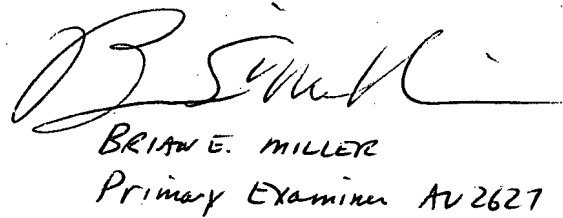 BRIAN E. MILLER
Primary Examiner AU 2627